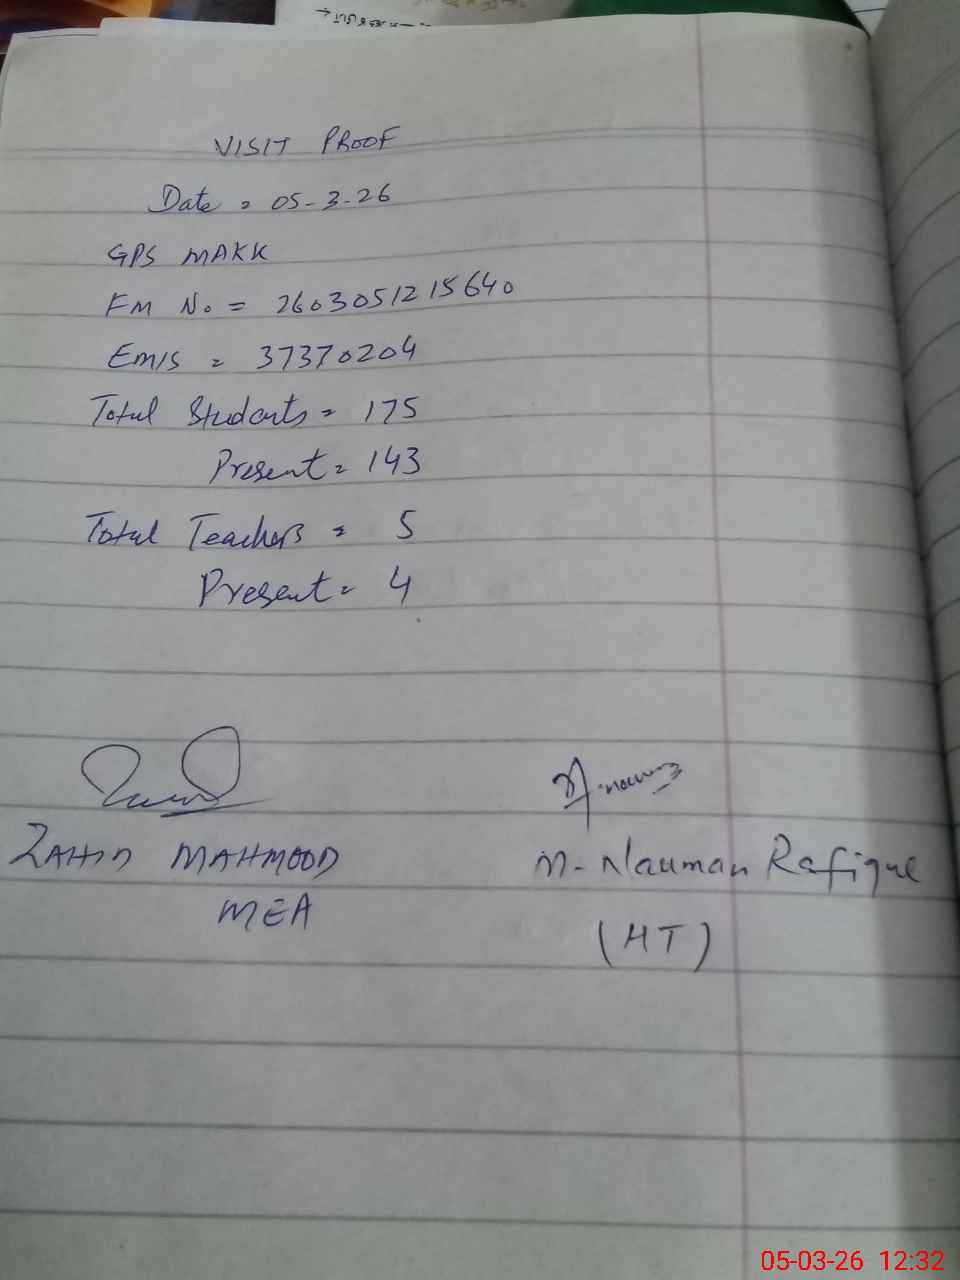 VISIT PROOF
Date = 05-3-26
GPS MAKK
FM No. = 2603051215640
EMIS = 37370204
Total Students = 175
Present = 143
Total Teachers = 5
Present = 4
ZAHID MAHMOOD
MEA
M. Nauman Rafique
(HT)
05-03-26 12:32